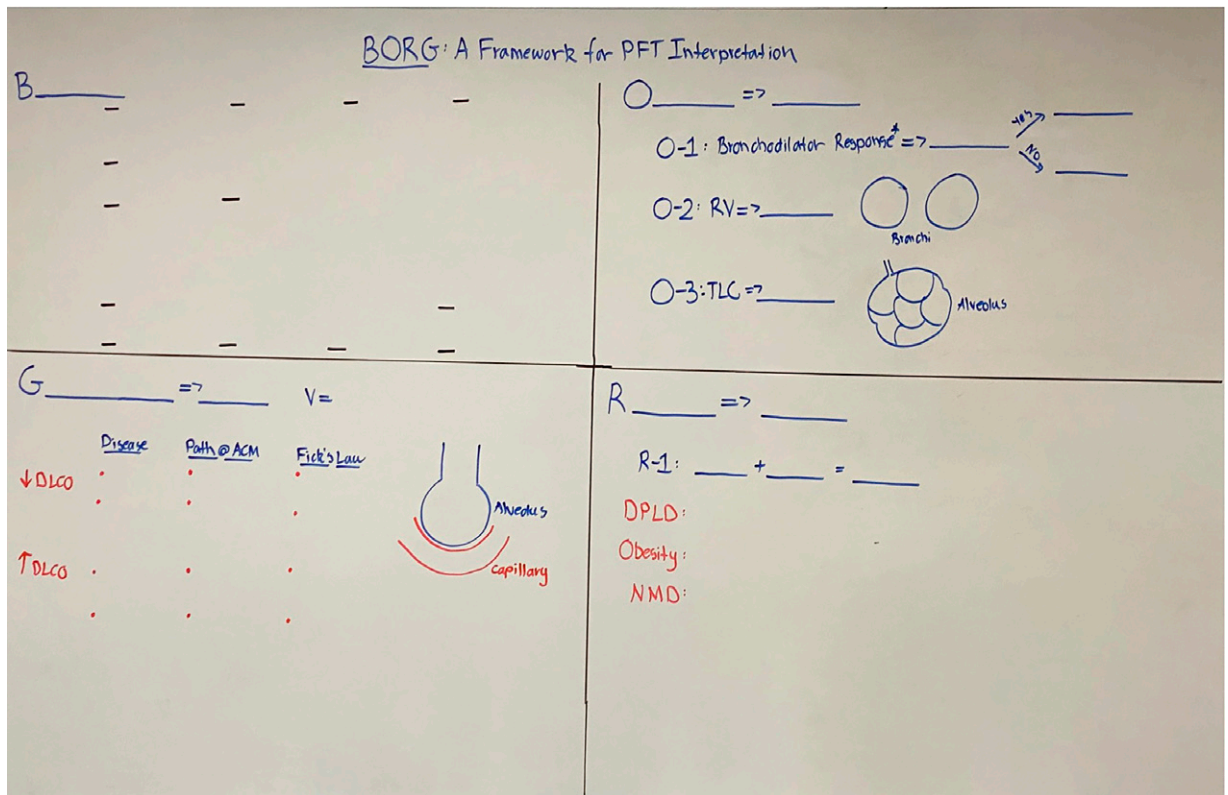 BORG: A Framework for PFT Interpretation
B
O => 
O-1: Bronchodilator Response* =>
yes
NO
O-2: RV =>
Bronchi
O-3: TLC =>
Alveolus
G => V=
Disease Path@ACM Fick's Law
↓DLCO
↑DLCO
Alveolus
Capillary
R =>
R-1: + =
DPLD:
Obesity:
NMD: